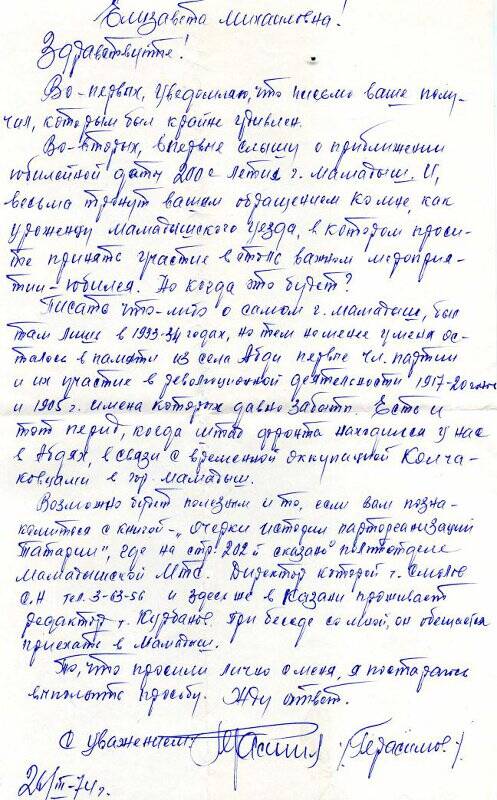 Елизавета Михайловна!
Здравствуйте!
Во-первых, уведомляю, что письмо ваше полу-
чил, которым был крайне удивлен.
Во-вторых, впервые слышу о приближении
юбилейной даты 200 с летия г. Мамадыш. И,
весьма тронут вашим обращением ко мне, как
уроженцу Мамадышского уезда, в котором проси-
те принять участие в столь важном мероприя-
тии-юбилея. Но когда это будет?
Писать что-либо о самом г. Мамадыше, был
там лишь в 1933-34 годах, но тем не менее у меня ос-
талось в памяти из села Абди первые чл. партии
и их участие в революционной деятельности 1917-20 годов
и 1905 г. имена которых давно забыты. Есть и
тот период, когда штаб фронта находился у нас
в Абдях, в связи с временной оккупацией Колча-
ковцами в гор. Мамадыш.
Возможно будет полезным и то, если вам позна-
комиться с книгой-„Очерки истории парторганизаций
Татарии", где на стр. 202й сказано политотделе
Мамадышской МТС. Директор которой т.
С.Н тел. 3-63-56 и здесь же в Казани проживает
редактор т. Курбанов. При беседе со мной, он обещается
приехать в Мамадыш.
То, что просили лично о меня, я постараюсь
выполнить просьбу. Жду ответ.
С уважением (Герасимов).
III-74 г.